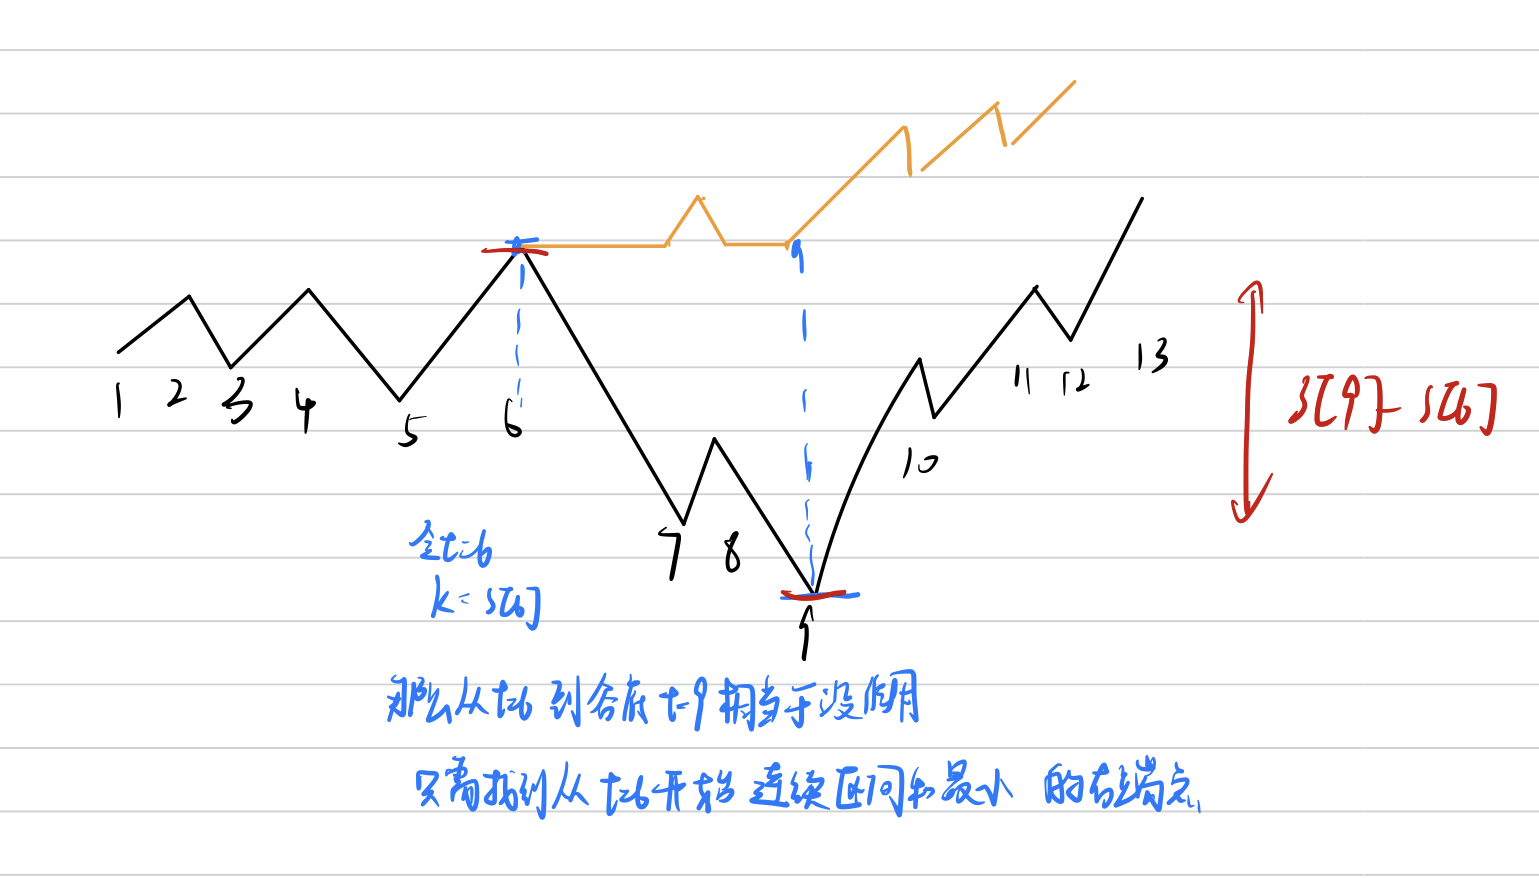 1 2 3 4 5 6 7 8 9 10 11 12 13
S[9] - S[6]
令t=6
k = S[6]
那么从t=6 到谷底 t=9 相当于没作用
只需找到从 t=6 开始 连续区间和最小 的右端点